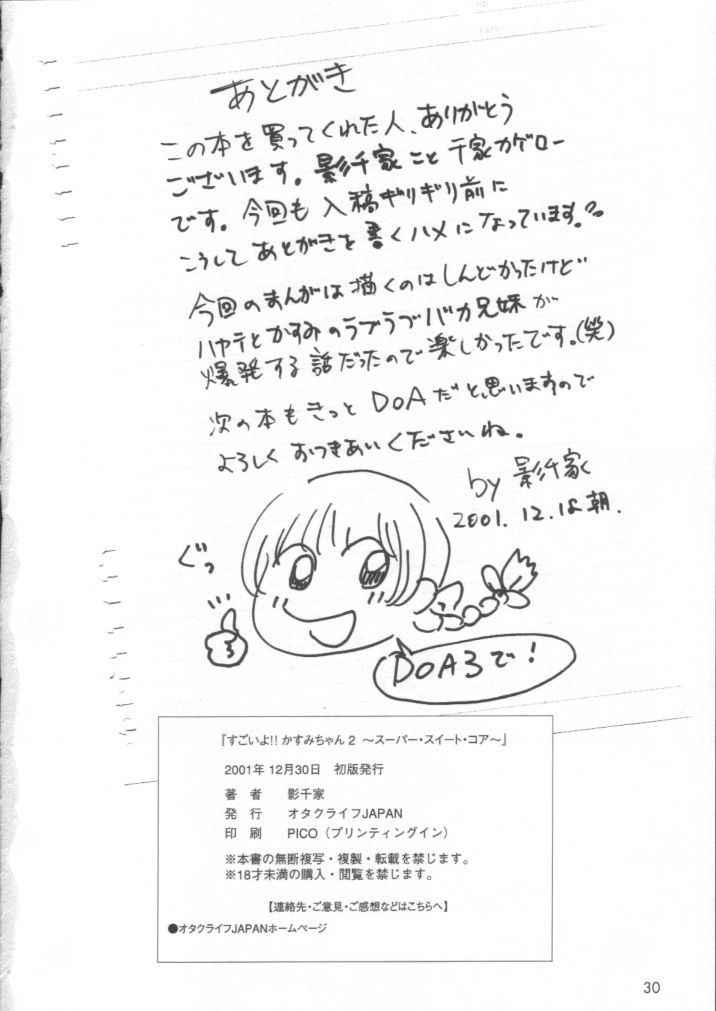 あとがき
この本を買ってくれた人、ありがとう
ございます。影千家こと千家カゲロー
です。今回も入稿ギリギリ前に
こうしてあとがきを書くハメになっています。
今回のまんがは描くのはしんどかったけど
ハヤテとかすみのラブラブバカ兄妹が
爆発する話だったので楽しかったです。(笑)
次の本もきっとDOAだと思いますので
よろしくおつきあいくださいね。
by 影千家
2001.12.18朝.
ぐっ
DOA3で!
『すごいよ!! かすみちゃん2 〜スーパー・スイート・コア〜』
2001年12月30日 初版発行
著 者 影千家
発 行 オタクライフJAPAN
印 刷 PICO（プリンティングイン）
※本書の無断複写・複製・転載を禁じます。
※18才未満の購入・閲覧を禁じます。
【連絡先・ご意見・ご感想などはこちらへ】
●オタクライフJAPANホームページ
30